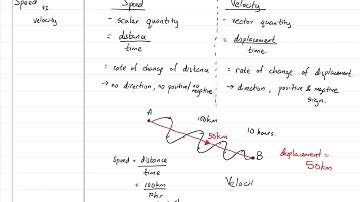 Speed
vs
velocity
Speed
- scalar quantity
= distance
time
= rate of change of distance
→ no direction, no positive/no negative.
Velocity
- vector quantity
= displacement
time
= rate of change of displacement.
→ direction, positive & negative
sign.
A
100km
50km
10 hours.
B
displacement =
50km
Speed = distance
time
= 100km
10hr
Velocit